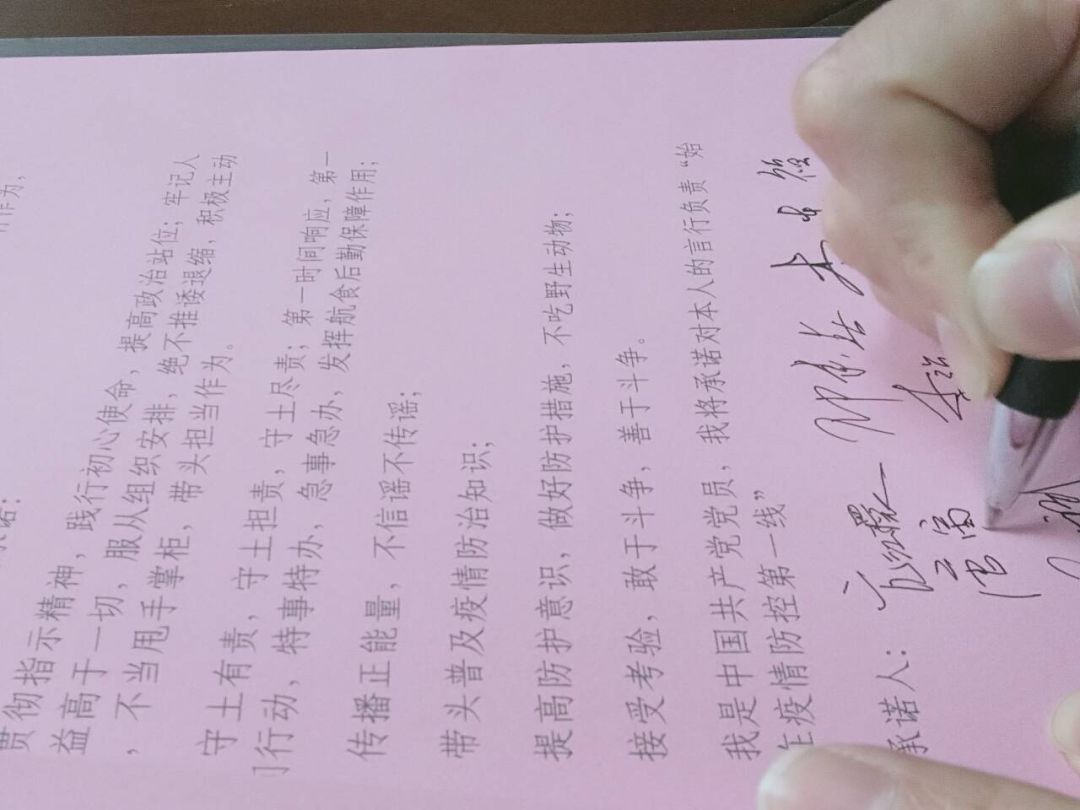 作为，
承诺：
贯彻指示精神，践行初心使命，提高政治站位；牢记人
益高于一切，服从组织安排，绝不推诿退缩，积极主动
，不当甩手掌柜，带头担当作为。
守土有责，守土担责，守土尽责；第一时间响应，第一
行动，特事特办，急事急办，发挥航食后勤保障作用；
传播正能量，不信谣不传谣；
带头普及疫情防治知识；
提高防护意识，做好防护措施，不吃野生动物；
接受考验，敢于斗争，善于斗争。
我是中国共产党党员，我将承诺对本人的言行负责“始
在疫情防控第一线”
承诺人：